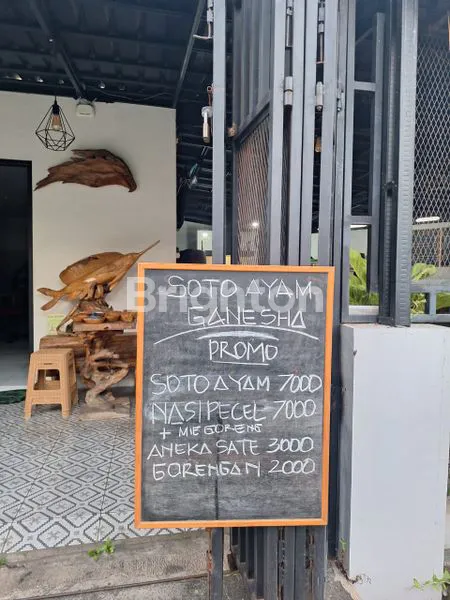 SOTO AYAM
GANESHA
PROMO
SOTO AYAM 7000
NASI PECEL 7000
+ MIE GORENG
ANEKA SATE 3000
GORENGAN 2000
Brighton